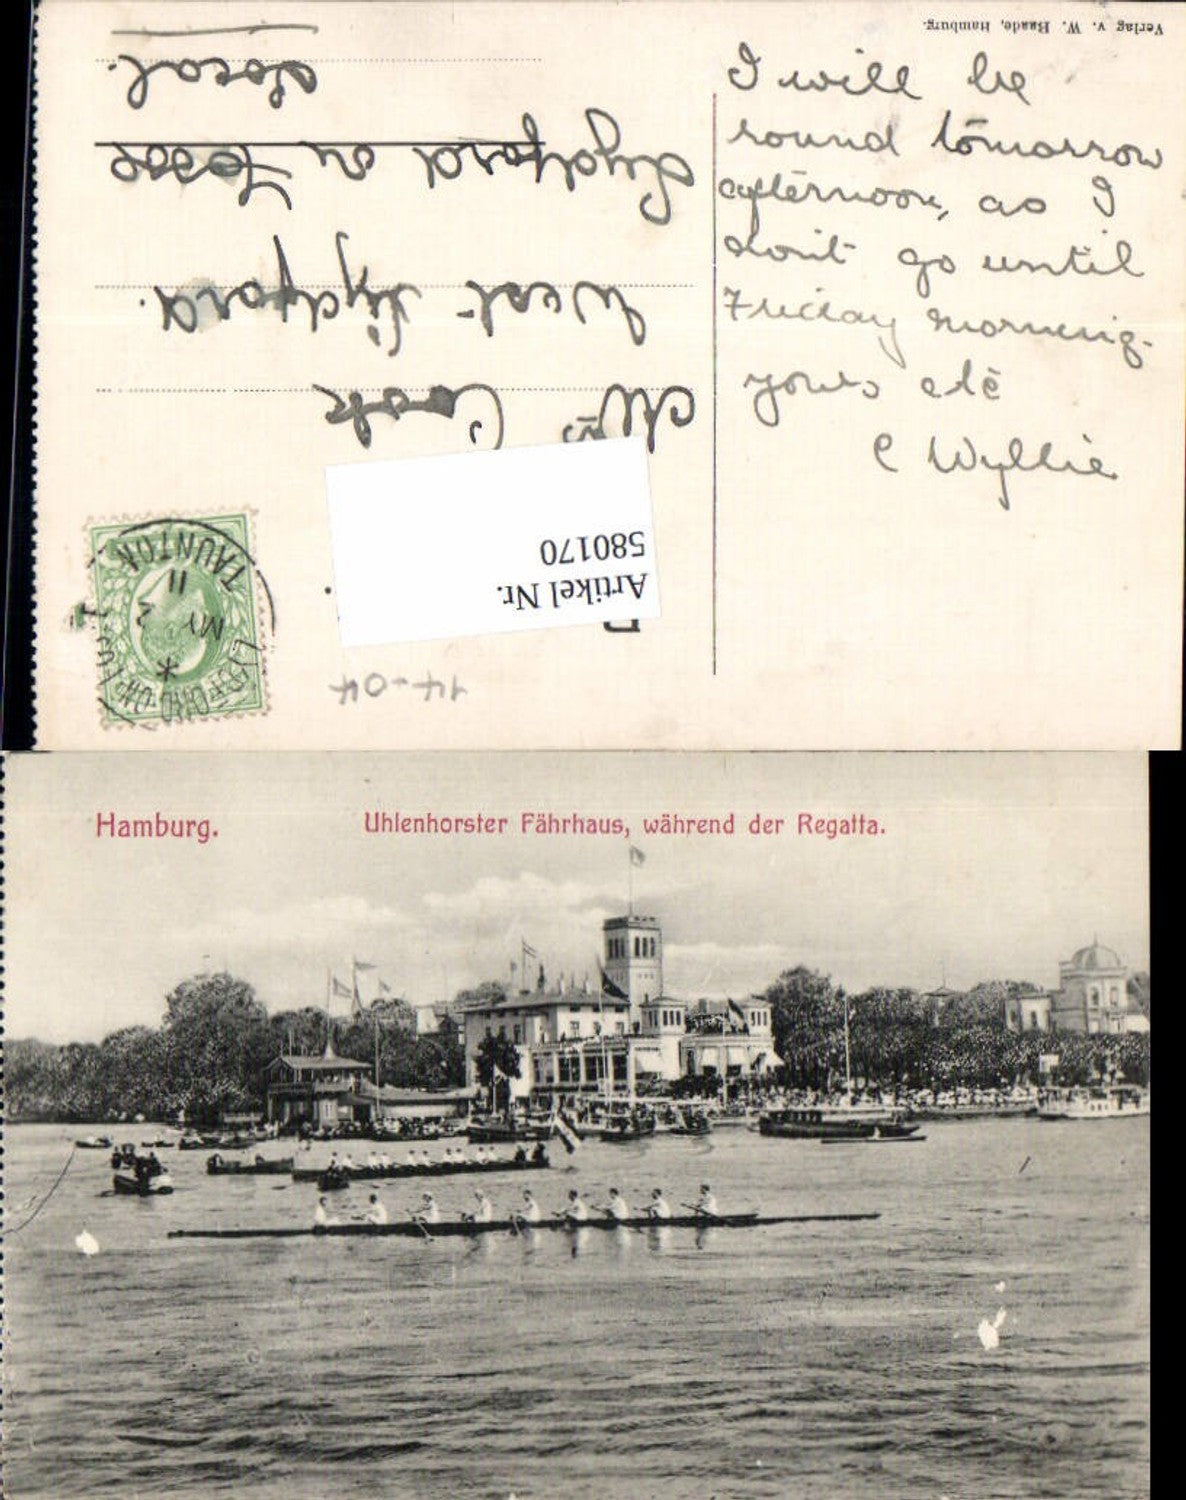 Verlag v. W. Baade, Hamburg.
I will be
round tomorrow
afternoon, as I
don't go until
Friday morning.
yours etc
C Wyllie
Mrs Cook
West Lydford.
Lydford on Fosse
Local.
Artikel Nr.
580170
TAUNTON
MY 2
11
14-04
Hamburg.
Uhlenhorster Fährhaus, während der Regatta.